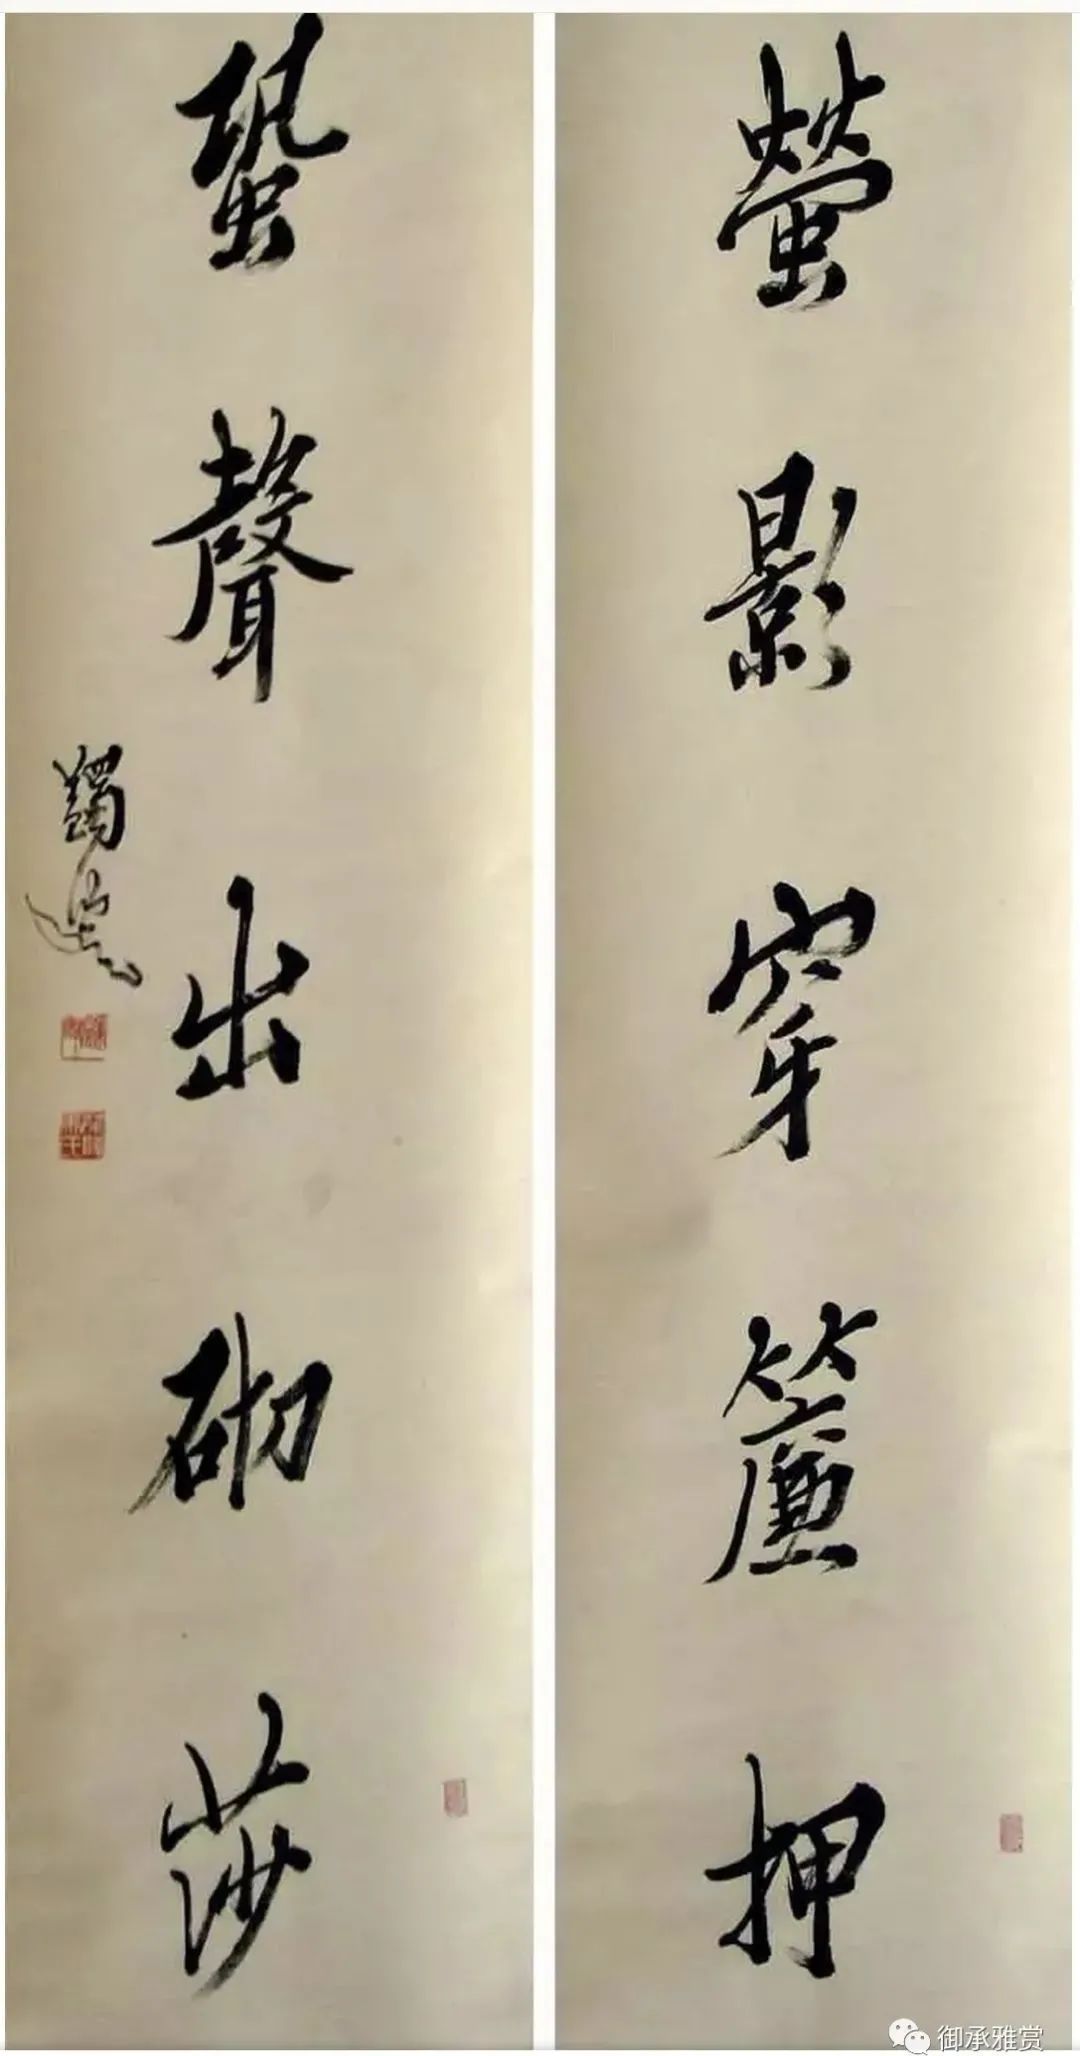 螢影穿簾押
蛩聲出砌莎
蠲叟
御承雅赏